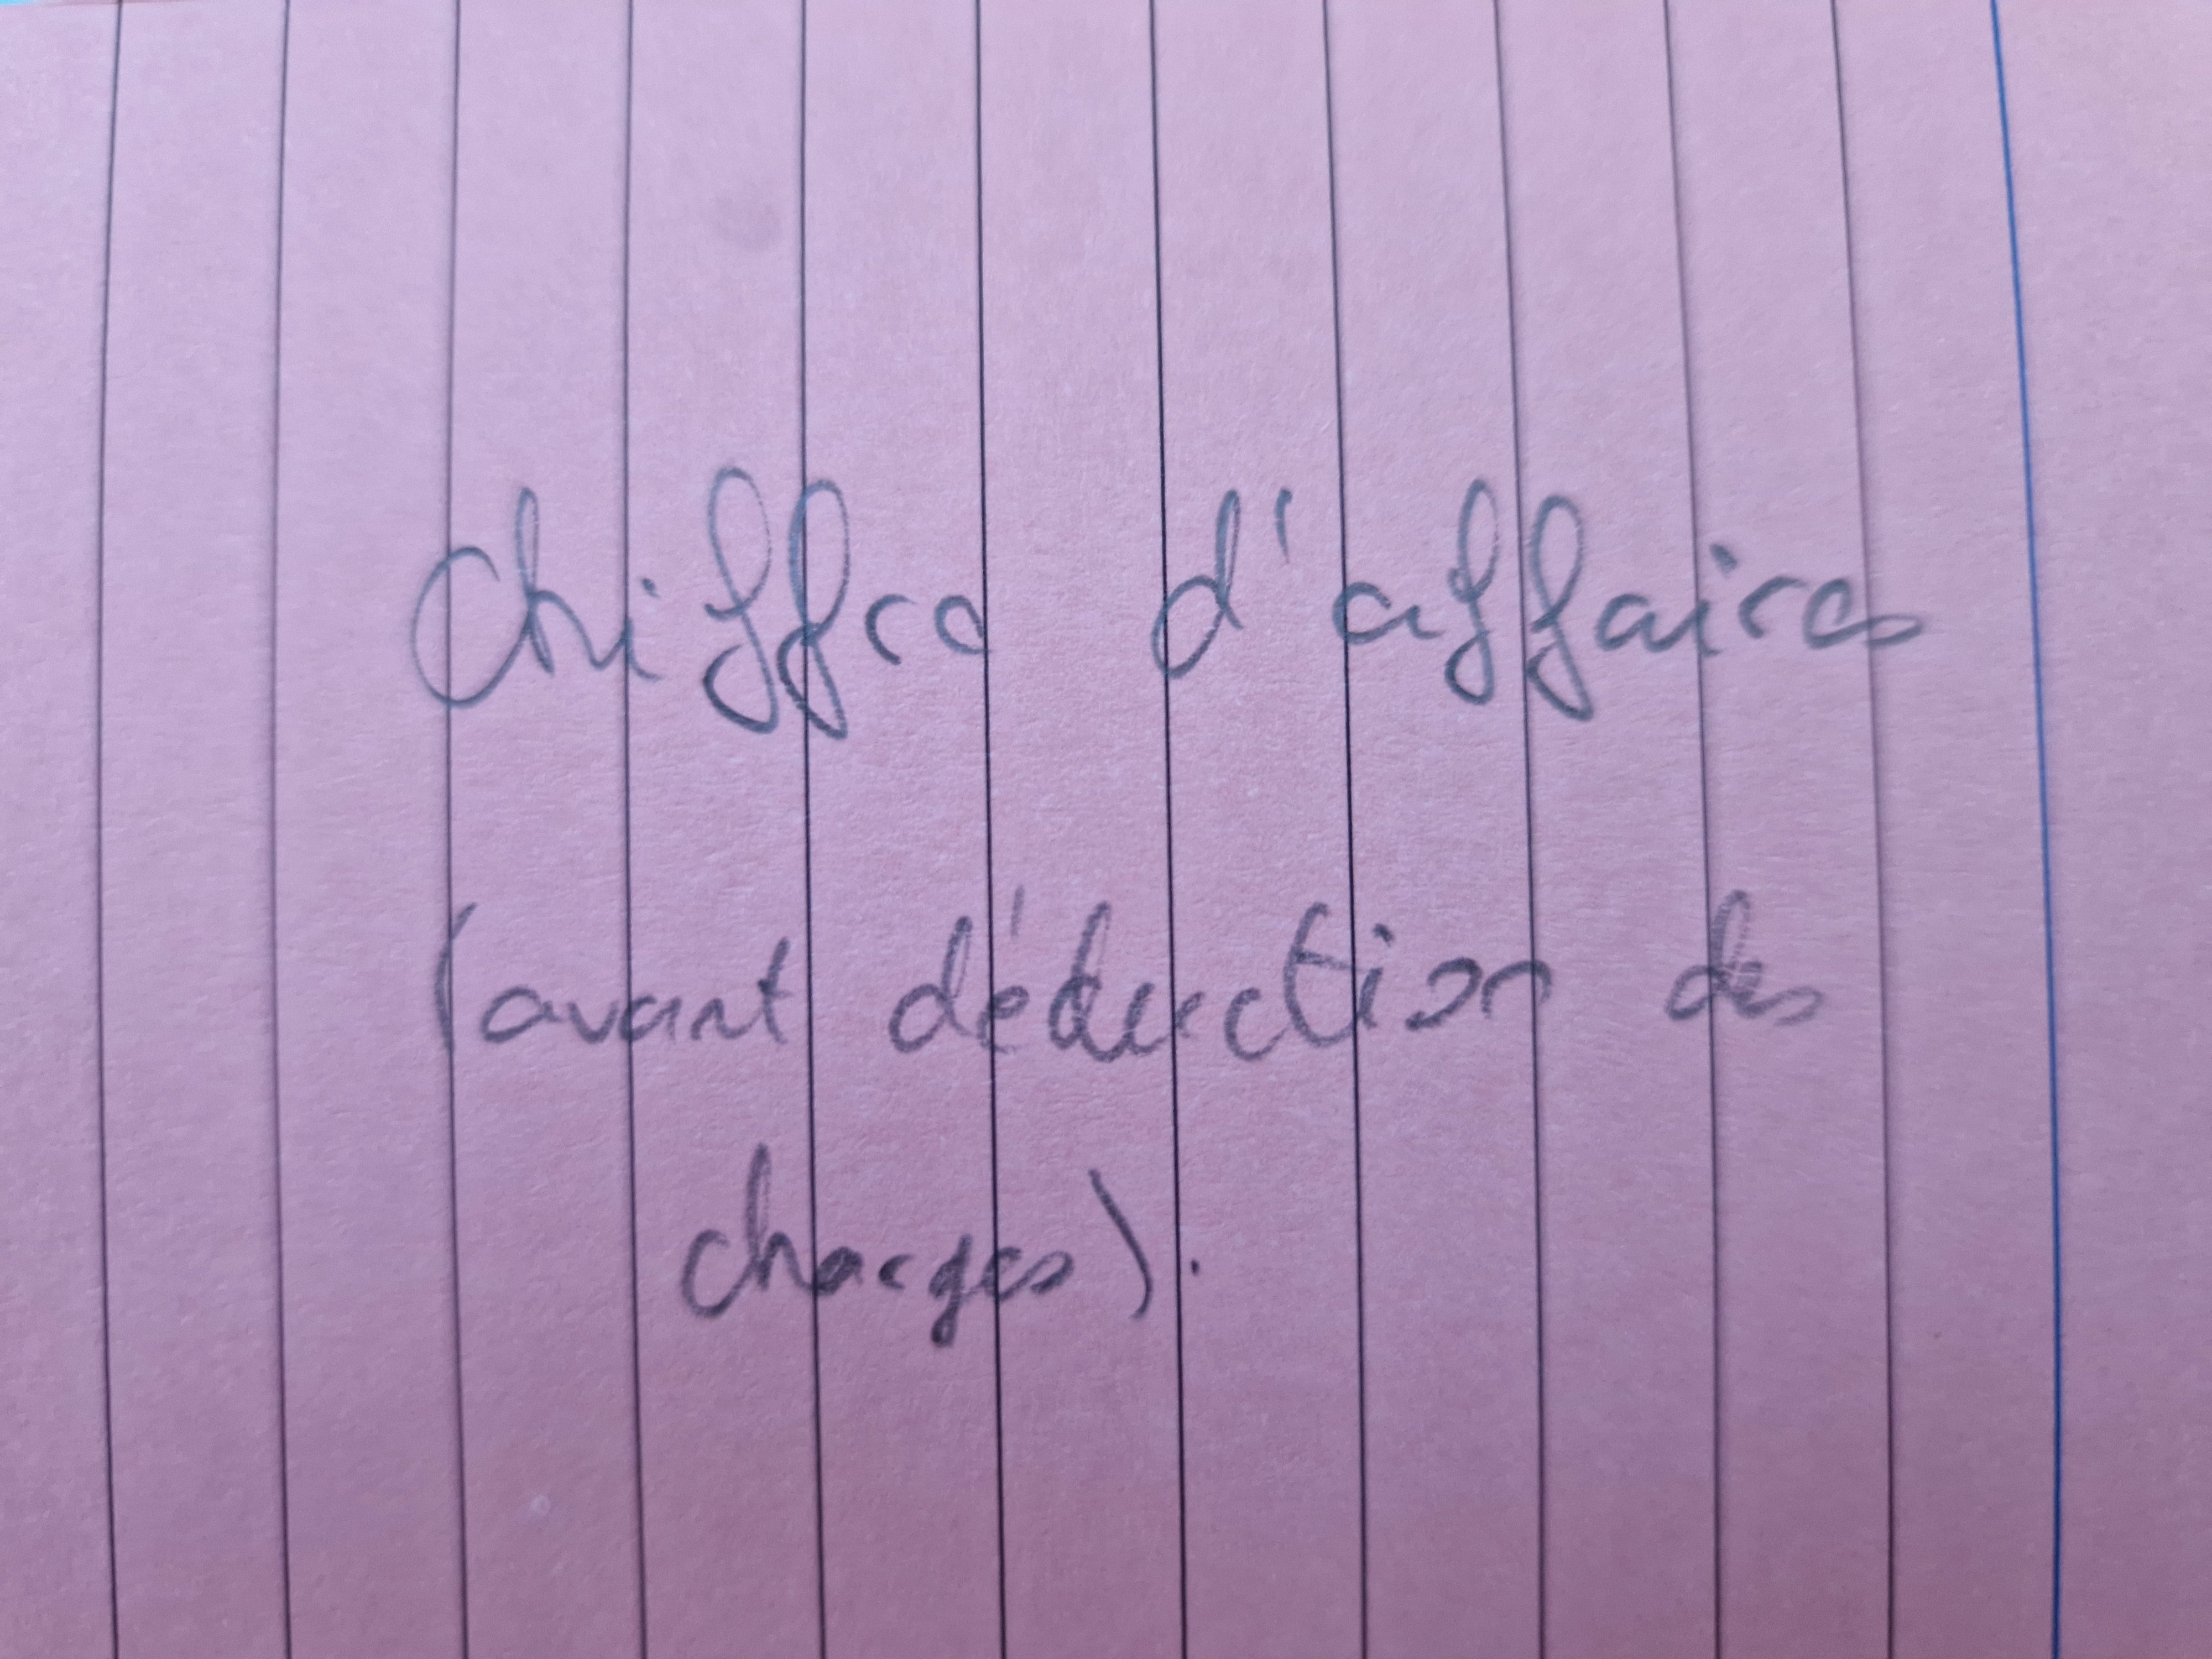 Chiffre d'affaires
(avant déduction des
charges).